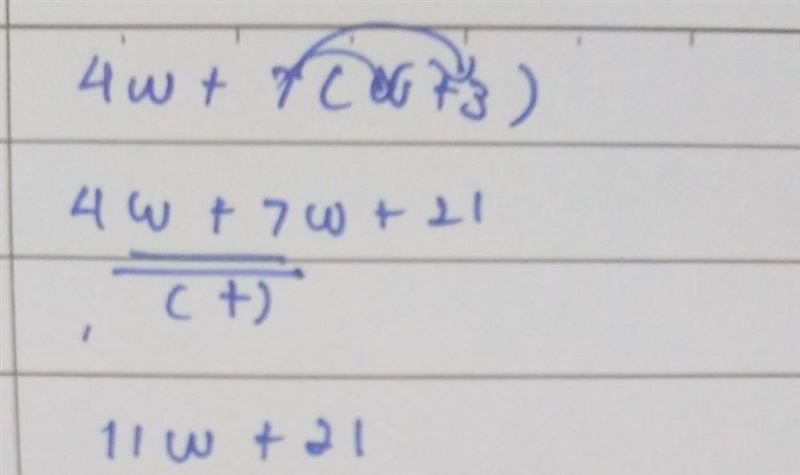 4w + 7(w + 3)
4w + 7w + 21
(+)
11w + 21